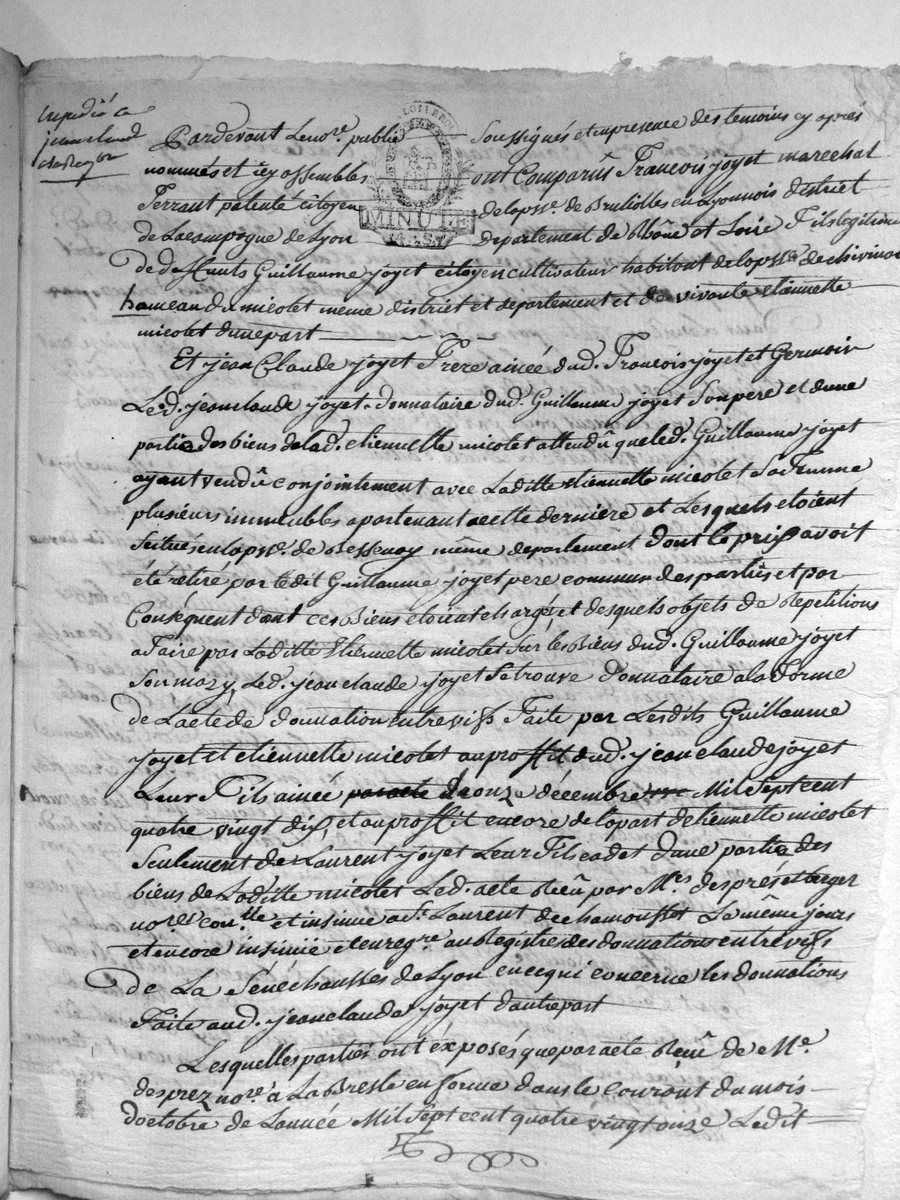 Expedié a
jean claude
Pardevant Le no.re public soussignés et en presence des temoins cy après
nommés et icy assemblés ont Comparûs François joyet marechal
MINUTE
Ferrant patenté citoyen de la ps.e de Brulioles en Lyonnois district
de La Campagne de Lyon departement de Rhône et Loire Fils legitime
de deffunts Guillaume joyet citoyen cultivateur habitant de la ps.e de chivinou
hameau du micolet meme district et departement et de vivante etiennette
micolet d'une part
Et jean Claude joyet Frere ainée dud. François joyet et Germain
Led. jean claude joyet donnataire dud. Guillaume joyet Son pere et d'une
partie des biens de lad. etiennette micolet attendû que led. Guillaume joyet
ayant vendû conjointement avec Laditte etiennette micolet Sa Femme
plusieurs immeubles apartenant a cette derniere et Lesquels etoient
Scitués en la ps.e de Bessenay même departement dont le prix avoit
été retiré par ledit Guillaume joyet pere commun des parties et par
Conséquent dont ces Biens etoient chargé, et desquels objets de Repetitions
a Faire par Laditte Etiennette micolet Sur les Biens dud. Guillaume joyet
Son mary, Led. jean claude joyet Se trouve donnataire a la Forme
de L'acte de donnation entrevifs Faite par Lesdits Guillaume
joyet et etiennette micolet au proffit dud. jean claude joyet
Leur Fils ainée par acte du onze décembre Mil Sept cent
quatre vingt dix, et au proffit encore de la part d'etiennette micolet
Seulement de Laurent joyet Leur Fils cadet d'une partie des
biens de Laditte micolet Led. acte Reçû par M.rs desprès et berger
no.res et insinué a S.t Laurent de chamousset Le même jours
et encore insinué et enreg.ré au Registre des donnations entrevifs
de La Sénéchaussés de Lyon en ce qui concerne les donnations
Faite aud. jean claude joyet d'autre part
Lesquelles parties ont éxposés que par acte Reçû de M.e
desprez no.re a La Bresle en forme dans le Courant du mois
d'octobre de L'année Mil Sept cent quatre vingt onze Ledit